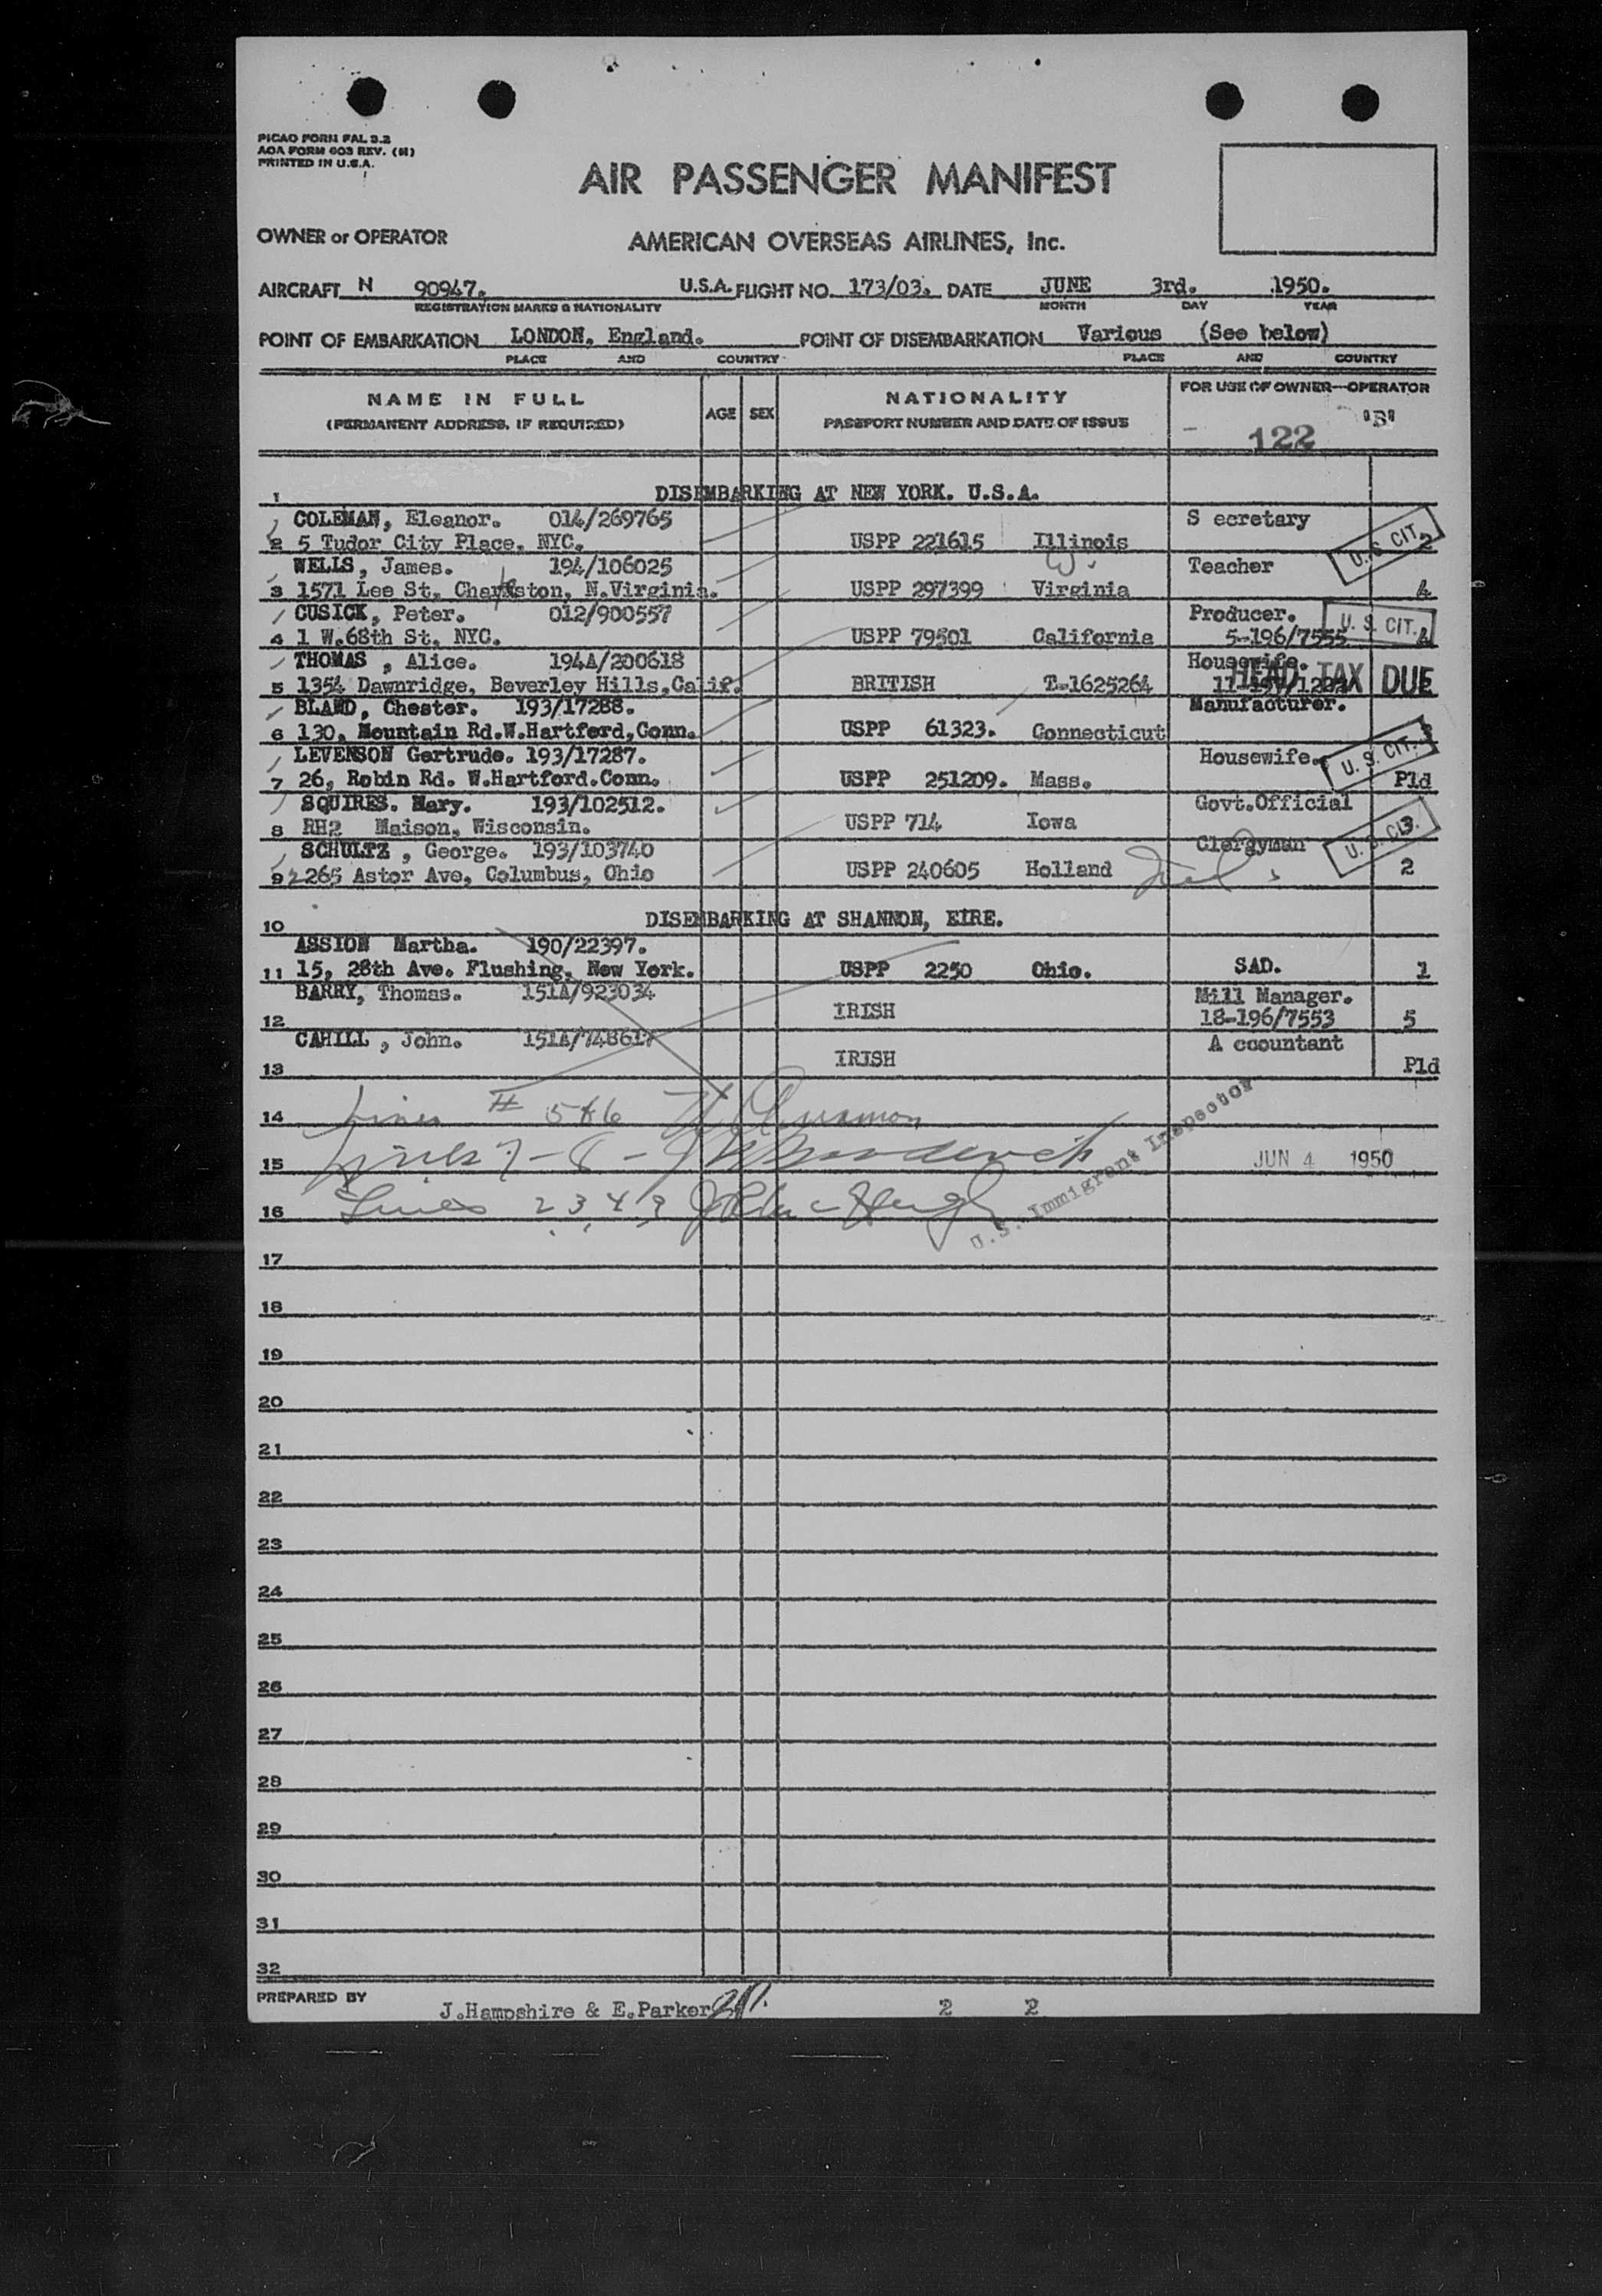 PICAO FORM FAL 3.2
AOA FORM 603 REV. (H)
PRINTED IN U.S.A.
AIR PASSENGER MANIFEST
OWNER or OPERATOR AMERICAN OVERSEAS AIRLINES, Inc.
AIRCRAFT N 90947. U.S.A. FLIGHT NO. 173/03. DATE JUNE 3rd. 1950.
REGISTRATION MARKS & NATIONALITY MONTH DAY YEAR
POINT OF EMBARKATION LONDON, England. POINT OF DISEMBARKATION Various (See below)
PLACE AND COUNTRY PLACE AND COUNTRY
NAME IN FULL AGE SEX NATIONALITY FOR USE OF OWNER—OPERATOR
(PERMANENT ADDRESS, IF REQUIRED) PASSPORT NUMBER AND DATE OF ISSUE
122 "B"
1 DISEMBARKING AT NEW YORK. U.S.A.
COLEMAN, Eleanor. 014/269765 S ecretary
2 5 Tudor City Place, NYC. USPP 221615 Illinois U. S. CIT. 2
WELLS, James. 194/106025 W. Teacher
3 1571 Lee St. Charleston, N.Virginia. USPP 297399 Virginia 4
CUSICK, Peter. 012/900557 Producer.
4 1 W.68th St. NYC. USPP 79501 California 5-196/7555 U. S. CIT. 4
THOMAS , Alice. 194A/200618 Housewife.
5 1354 Dawnridge, Beverley Hills,Calif. BRITISH T-1625264 HEAD TAX DUE
BLAND, Chester. 193/17288. Manufacturer.
6 130, Mountain Rd.W.Hartford,Conn. USPP 61323. Connecticut 3
LEVENSON Gertrude. 193/17287. Housewife. U. S. CIT.
7 26, Robin Rd. W.Hartford.Conn. USPP 251209. Mass. Pld
SQUIRES. Mary. 193/102512. Govt.Official
8 RH2 Maison, Wisconsin. USPP 714 Iowa 3
SCHULTZ , George. 193/103740 Clergyman U. S. CIT.
9 2265 Astor Ave, Columbus, Ohio USPP 240605 Holland 2
10 DISEMBARKING AT SHANNON, EIRE.
ASSION Martha. 190/22397.
11 15, 28th Ave. Flushing, New York. USPP 2250 Ohio. SAD. 1
BARRY, Thomas. 151A/923034 Mill Manager.
12 IRISH 18-196/7553 5
CAHILL , John. 151A/748617 A ccountant
13 IRISH Pld
14 Lines # 5 & 6
15 Lines 7-8- JUN 4 1950
16 Lines 2 3 4 9
U.S. Immigrant Inspector
17
18
19
20
21
22
23
24
25
26
27
28
29
30
31
32
PREPARED BY J.Hampshire & E.Parker 2 2